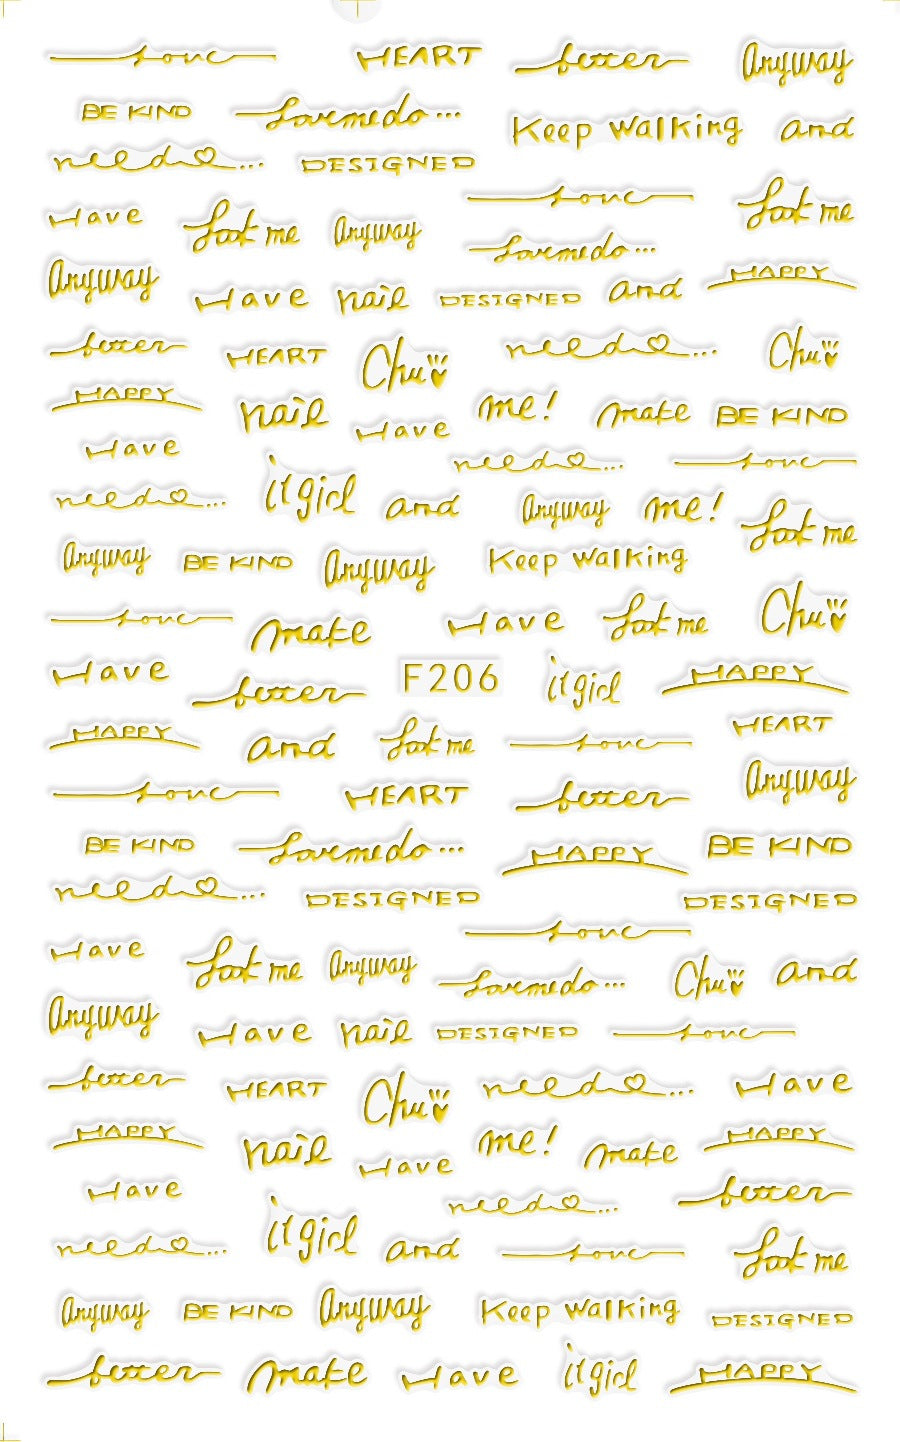 Love HEART better Anyway
BE KIND Love me do...
Keep Walking and
need... DESIGNED
Love Look me
Have Look me Anyway
Love me do...
Anyway HAPPY
Have nail DESIGNED and
better HEART Chu need... Chu
HAPPY nail Have me! make BE KIND
Have need... Love
need... it girl and Anyway me! Look me
Anyway BE KIND Anyway Keep Walking
Love make Have Look me Chu
Have better F206 it girl HAPPY
HAPPY and Look me Love HEART
Love HEART better Anyway
BE KIND Love me do... HAPPY BE KIND
need... DESIGNED DESIGNED
Love
Have Look me Anyway Love me do... Chu and
Anyway Have nail DESIGNED Love
better HEART Chu need... Have
HAPPY nail Have me! make HAPPY
Have need... better
need... it girl and Love Look me
Anyway BE KIND Anyway Keep Walking DESIGNED
better make Have it girl HAPPY